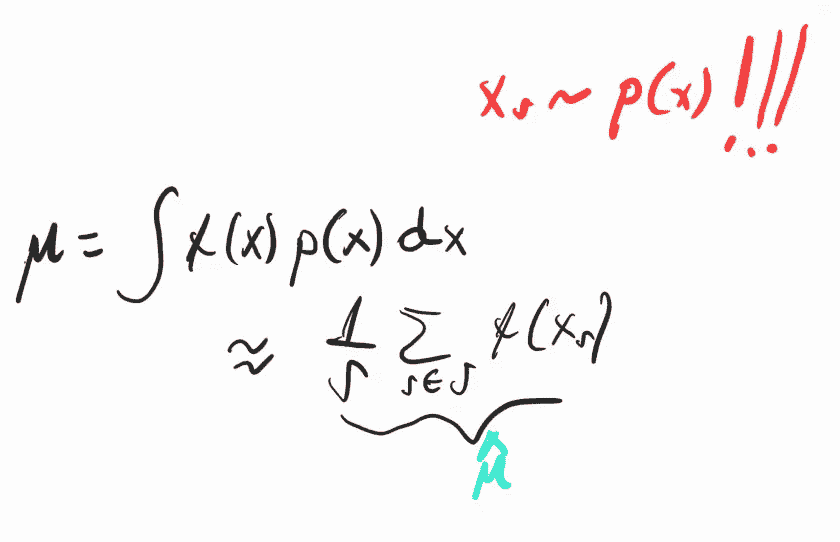 x_s ~ p(x) !!!
μ = ∫ f(x) p(x) dx
≈ 1/S ∑_{s∈S} f(x_s)
μ̂